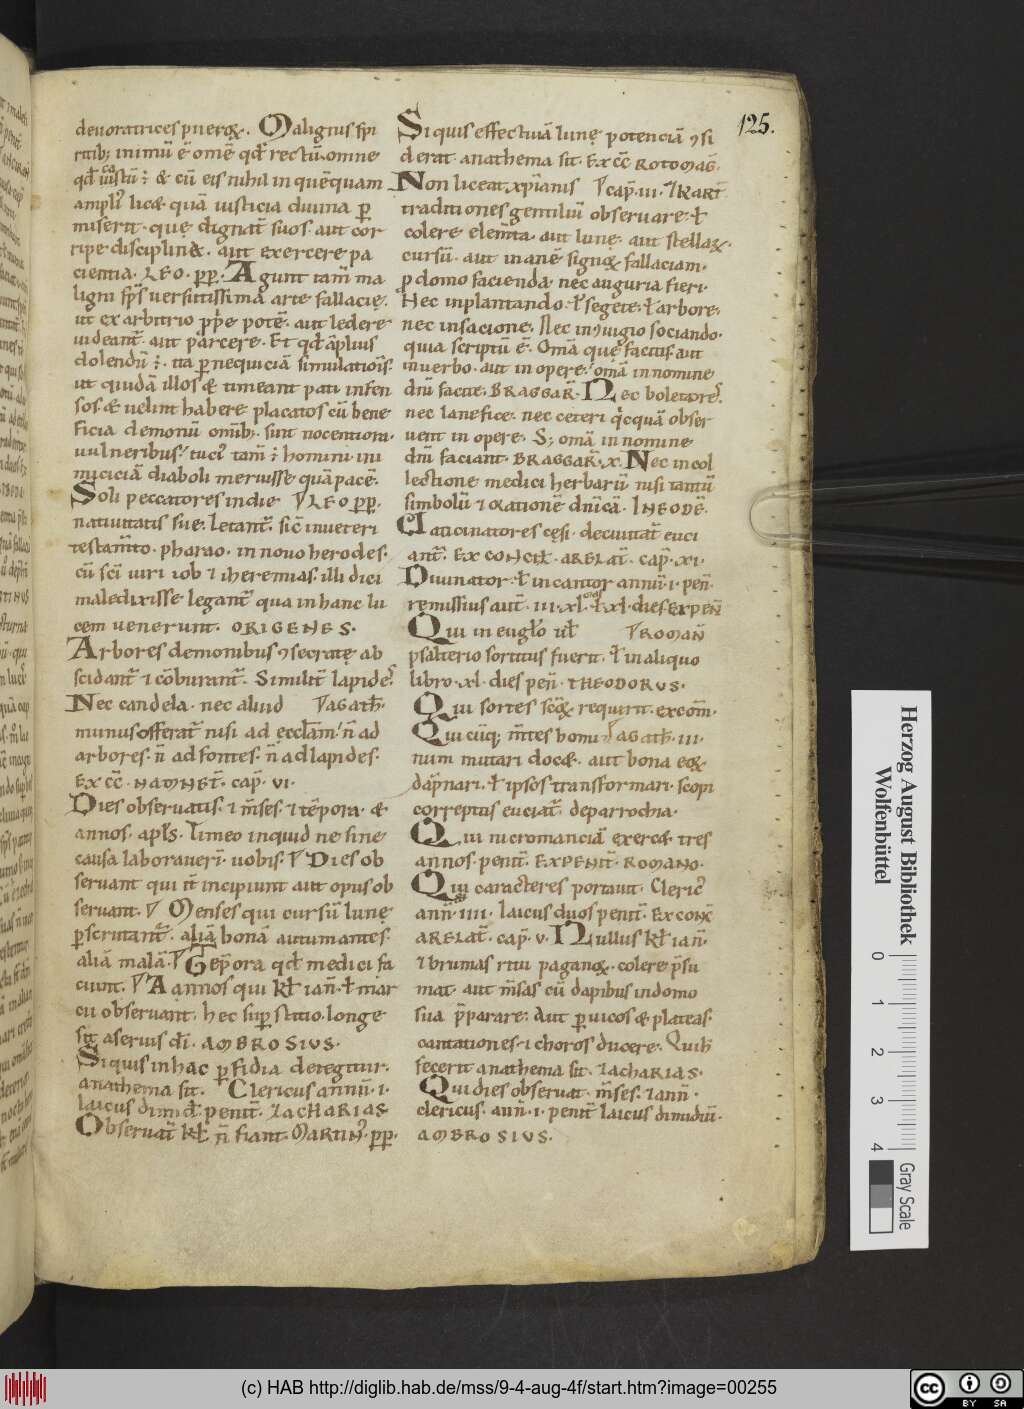 125.
deuoratrices pueroꝝ. Malignus sp̄i
ritib; inimū ē om̄e qđ rectū. omne
qđ iustū ÷ & cū eis nihil in quēquam
ampli᷑ licæ quā iusticia diuina ꝑ
miserit. quę dignat̄ suos. aut cor
ripe disciplinæ. aut exercere pa
cientia. LEO. ꝑꝑ. Agunt tam̄ ma
ligni sp̄s uersutissima arte fallacię.
ut ex arbitrio ꝓprie potē. aut ledere
uideant̄. aut parcere. Et qđ āplius
dolendū ÷. ita ꝑnequiciā simulationis.
ut quidā illos æ timeant pati infen
sos æ uelint habere placatos cū bene
ficia demonū om̄ib;. sint nocentiora.
uulneribus. tuci᷑ tam̄ ÷ homini ini
miciciā diaboli meruisse quā pacē.
Soli peccatores in die LEO ꝑꝑ.
natiuitatis sue. letant̄. sic̄ in ueteri
testam̄to. pharao. in nouo herodes.
cū sc̄i uiri iob ⁊ iheremias. illi diei
maledixisse legant̄ qua in hanc lu
cem uenerunt. ORIGENES.
Arbores demonibus ɔsecratę ab
scidant̄ ⁊ cōburant̄. Similit̄ lapides.
Nec candela. nec aliud AGATH.
munus offerat̄ nisi ad eccl̄am. n̄ ad
arbores. n̄ ad fontes. n̄ ad lapides.
EX CC̄. NAMNET̄. cap̄. VI.
Dies obseruatis. ⁊ m̄ses. ⁊ tēpora. æ
annos. apl̄s. Timeo inquid ne sine
causa laborauerī. uobis. Dies ob
seruant qui it̄ incipiunt aut opus ob
seruant. Menses qui cursū lunę
ꝑscrutant̄. aliā bonā autumantes.
aliā malā. Tēpora qđ medici fa
ciunt. Aannos qui kł ian̄. ł mar
cii obseruant. hec supstitio. longe
sit aseruis dī. AMBROSIVS.
Siquis in hac ꝑfidia detegitur.
anathema sit. Clericus annū. i.
laicus dimid. penit̄. ZACHARIAS
Obseruat̄ kł n̄ fiant. MARTIN᷑. ꝑꝑ.
Siquis effectiuā lunę potenciā ɔsi
derat. anathema sit. EX CC̄ ROTOMAḠ.
Non liceat xp̄ianis cap̄. III. 
traditiones gentiliū obseruare. ł
colere elem̄ta. aut lunę. aut stellaꝝ.
cursū. aut inanē signoꝝ fallaciam.
ꝓ domo facienda. nec auguria fieri.
Nec inplantando. ł segete. ł arbore.
nec insacione. Nec in ɔiugio sociando.
quia scriptū ē. Om̄a quę facitis aut
in uerbo. aut in opere. om̄a in nomine
dn̄i facite. BRAGGAR̄. Nec boletores.
nec lanefice. nec ceteri q̇cquā obser
uent in opere. S; om̄a in nomine
dn̄i faciant. BRAGGAR̄. X. Nec in col
lectione medici herbarū nisi tantū
simbolū & orationē dn̄icā. 
Uaticinatores cęsi. de ciuitat̄ eici
ant̄. EX CONCIL̄. ARELAT̄. cap̄. XI.
Diuinator. ł incantor annū. i. pen̄.
remissius aut̄. III. xl. ł xl. dies ex pen̄
Qui in eugl̄o uł ROMAN̄
psalterio sortitus fuerit. ł in aliquo
libro. xl. dies pen̄. THEODORVS.
Qui sortes scōꝝ requirit. excom̄.
Qui cūq; m̄tes homi AGATH̄. III.
num mutari docæ. aut bona eoꝝ
dāpnari. ł ipsos transformari. scopi
correptus eiciat̄. de parrochia.
Qui nicromanciā exercæ tres
annos. penit̄. EX PENIT̄. ROMANO.
Qui caracteres portauit. Cleric᷑
ann̄. IIII. laicus duos penit̄. EX CONC̄
ARELAT̄. cap̄. V. Nullus kł ian̄.
⁊ brumas ritu paganoꝝ. colere p̄su
mat. aut m̄sas cū dapibus in domo
sua p̄parare. Aut ꝑ uicos æ plateas.
cantationes. ⁊ choros ducere. Quih
fecerit anathema sit. ZACHARIAS.
Qui dies obseruat. m̄ses. ⁊ ann̄.
clericus. ann̄. i. penit̄ laicus dimidiū.
AMBROSIVS.
Herzog August Bibliothek
Wolfenbüttel
0 1 2 3 4
Gray Scale
(c) HAB http://diglib.hab.de/mss/9-4-aug-4f/start.htm?image=00255
cc BY SA